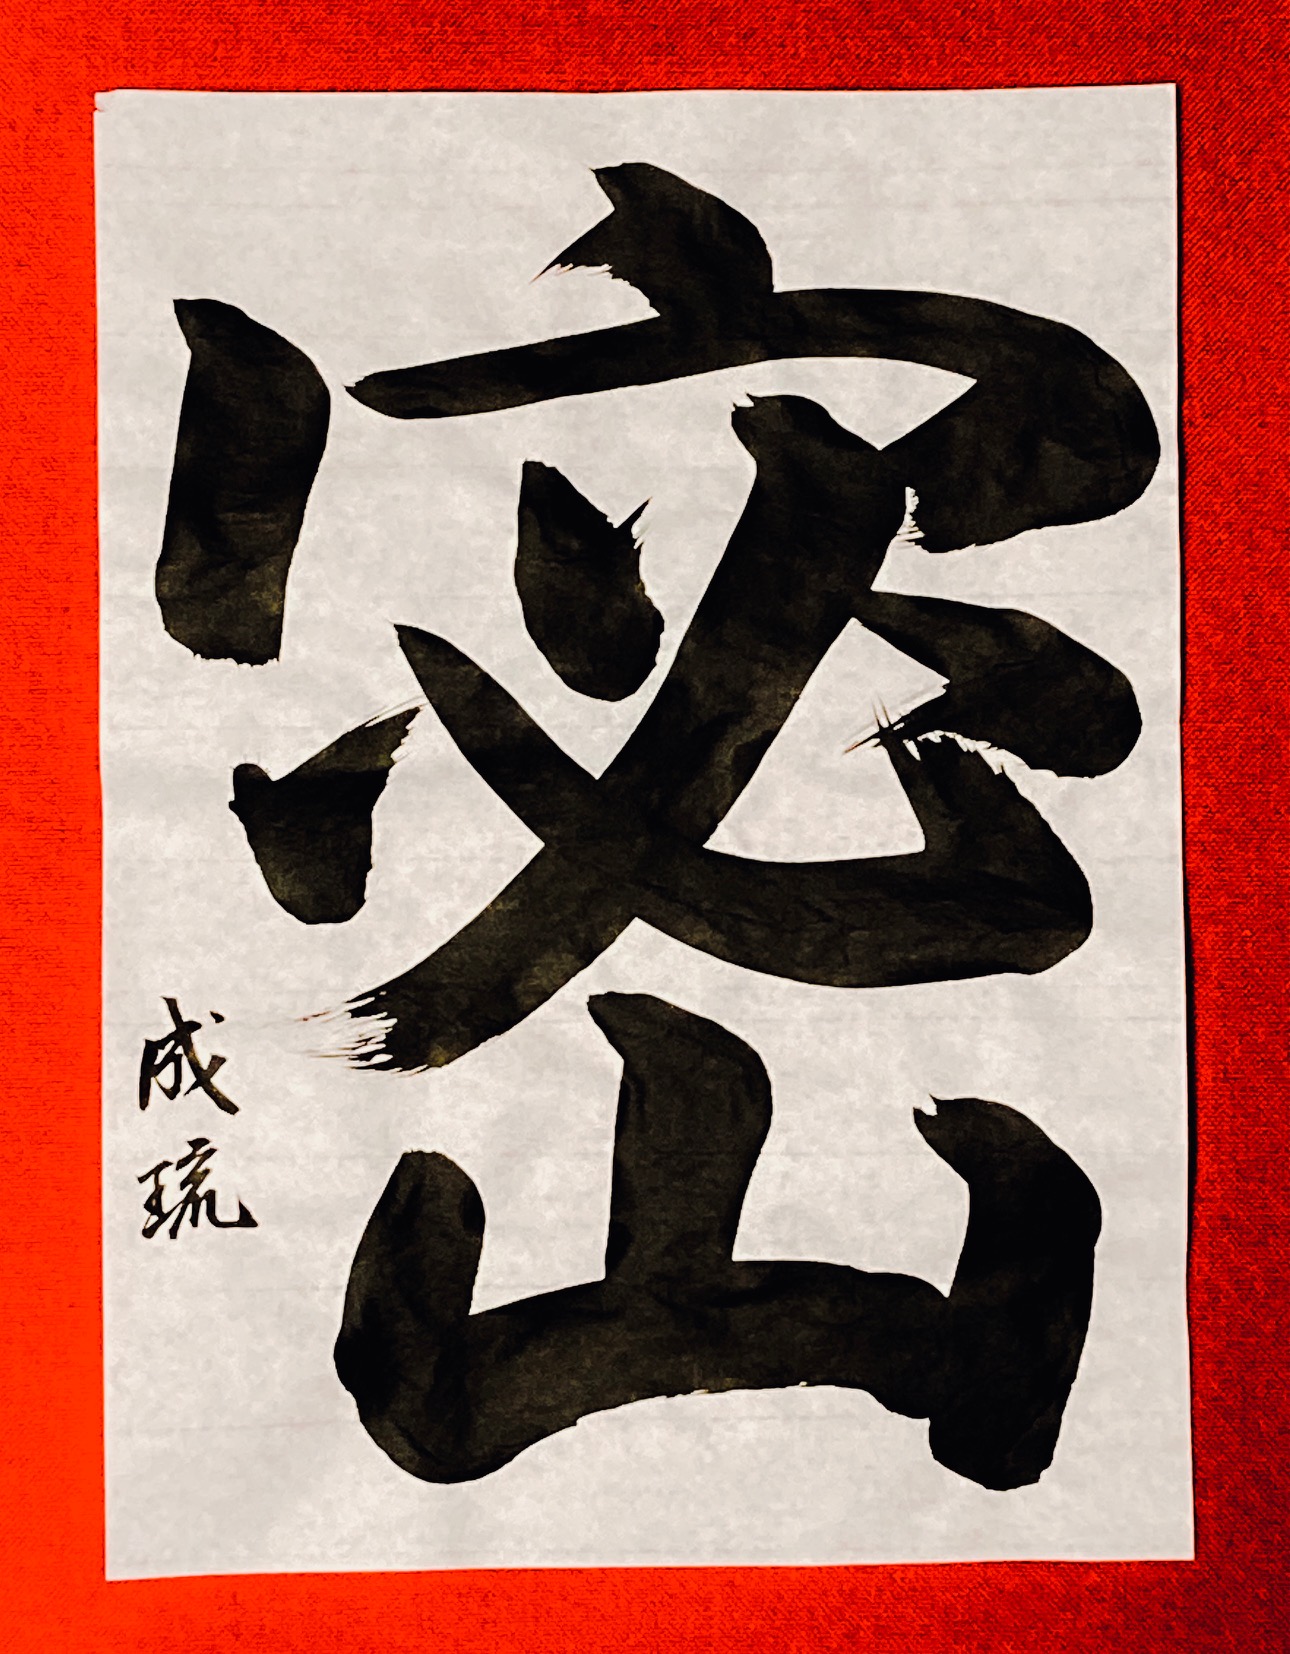 密
成琉